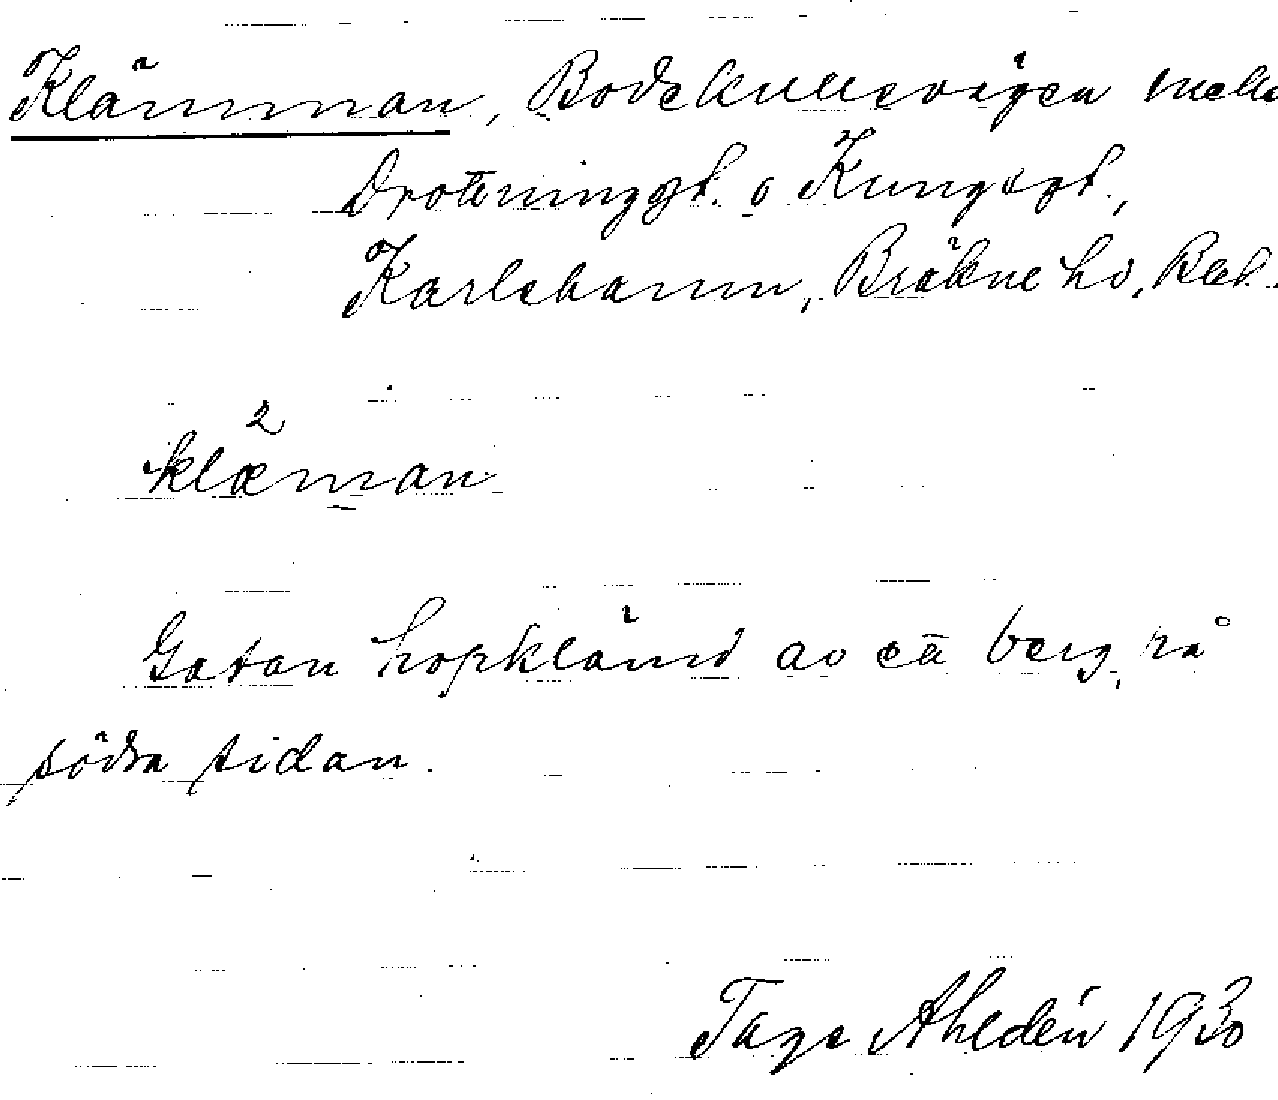 Klämman, Bodekullsvägen mella
Drottninggt. o Kungsgt.,
Karlshamn, Bräkne hd, Blek.
2
klæman
Gatan hopklämd av en berg, på
södra sidan.
Tage Ahldén 1930